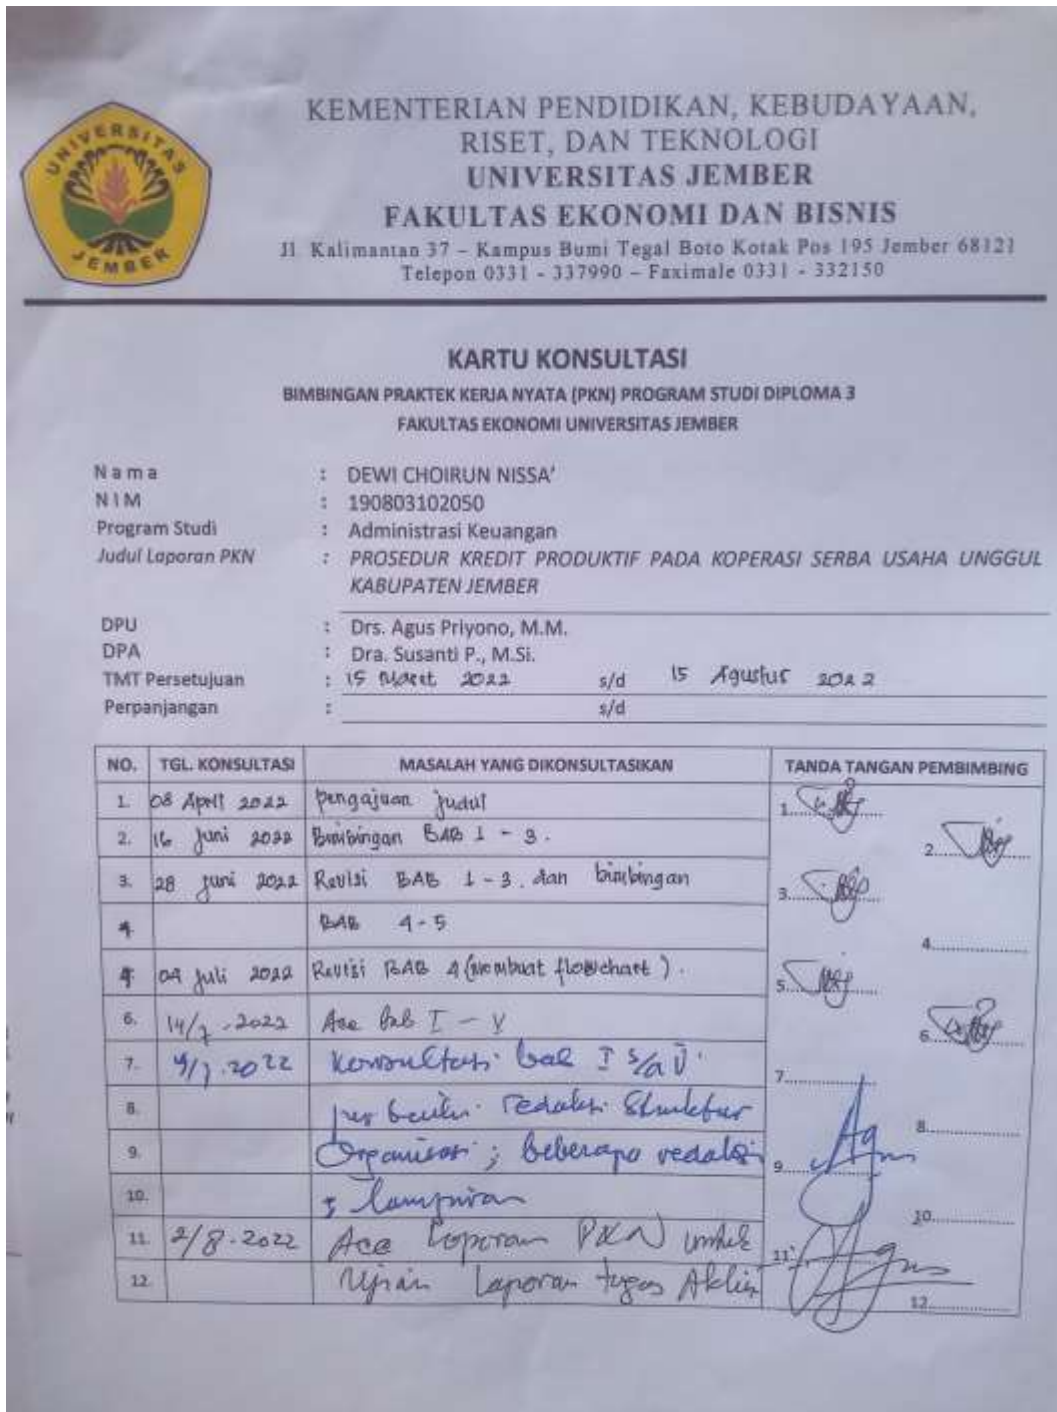 UNIVERSITAS
JEMBER
KEMENTERIAN PENDIDIKAN, KEBUDAYAAN,
RISET, DAN TEKNOLOGI
UNIVERSITAS JEMBER
FAKULTAS EKONOMI DAN BISNIS
Jl. Kalimantan 37 – Kampus Bumi Tegal Boto Kotak Pos 195 Jember 68121
Telepon 0331 - 337990 – Faximale 0331 - 332150
KARTU KONSULTASI
BIMBINGAN PRAKTEK KERJA NYATA (PKN) PROGRAM STUDI DIPLOMA 3
FAKULTAS EKONOMI UNIVERSITAS JEMBER
Nama : DEWI CHOIRUN NISSA'
NIM : 190803102050
Program Studi : Administrasi Keuangan
Judul Laporan PKN : PROSEDUR KREDIT PRODUKTIF PADA KOPERASI SERBA USAHA UNGGUL
KABUPATEN JEMBER
DPU : Drs. Agus Priyono, M.M.
DPA : Dra. Susanti P., M.Si.
TMT Persetujuan : 15 Maret 2022 s/d 15 Agustus 2022
Perpanjangan : s/d
NO. TGL. KONSULTASI MASALAH YANG DIKONSULTASIKAN TANDA TANGAN PEMBIMBING
1. 08 April 2022 pengajuan judul 1.
2. 16 Juni 2022 Bimbingan BAB 1 - 3. 2.
3. 28 Juni 2022 Revisi BAB 1 - 3. dan bimbingan 3.
4. BAB 4 - 5 4.
04 Juli 2022 Revisi BAB 4 (membuat flowchart). 5.
6. 14/7.2022 Acc bab I - V 6.
7. 2022 Konsultasi bab I s/d V. 7.
8. redaksi Struktur 8.
9. Organisasi; beberapa redaksi 9.
10. lampiran 10.
11. 2/8.2022 Acc Laporan PKN untuk 11.
12. Ujian Laporan tugas Akhir 12.